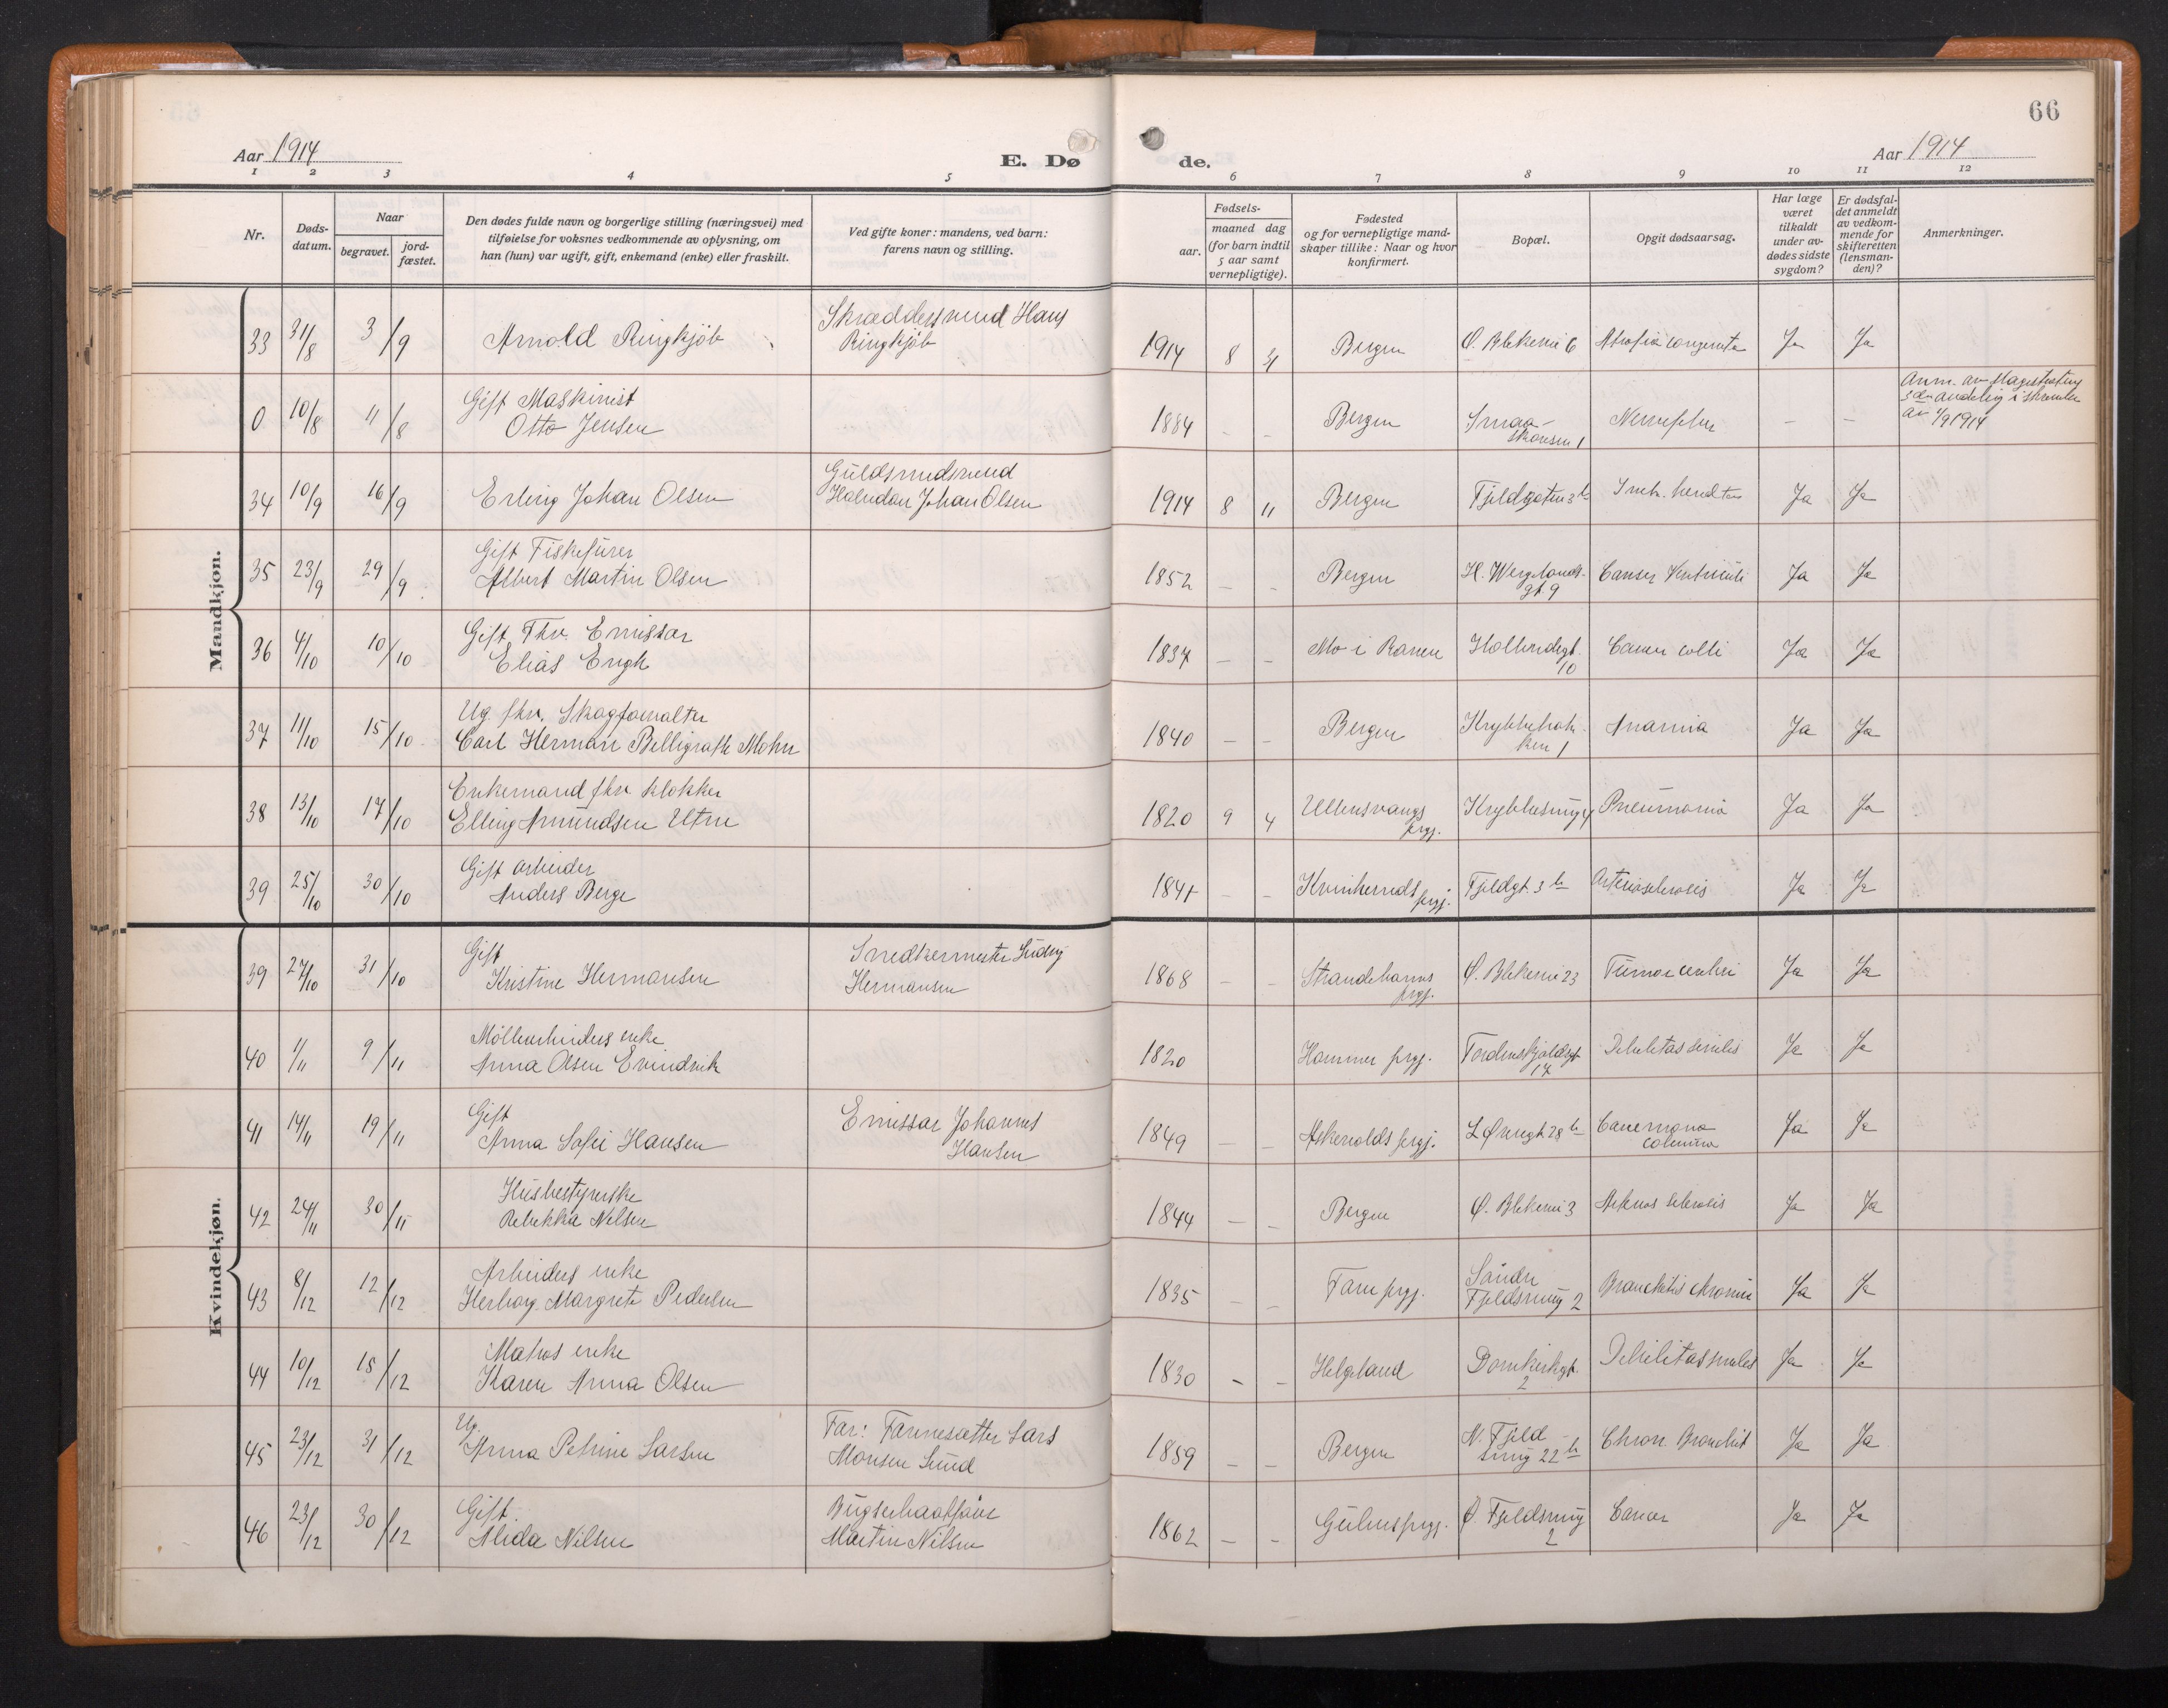 66
Aar 1914
E. Dø
de.
Aar 1914
1 2 3 4 5 6 7 8 9 10 11 12
Nr.
Døds-
datum.
Naar
begravet.
jord-
fæstet.
Den dødes fulde navn og borgerlige stilling (næringsvei) med
tilføielse for voksnes vedkommende av oplysning, om
han (hun) var ugift, gift, enkemand (enke) eller fraskilt.
Ved gifte koner: mandens, ved barn:
farens navn og stilling.
Fødsels-
aar.
maaned dag
(for barn indtil
5 aar samt
vernepligtige).
Fødested
og for vernepligtige mand-
skaper tillike: Naar og hvor
konfirmert.
Bopæl.
Opgit dødsaarsag.
Har læge
været
tilkaldt
under av-
dødes sidste
sygdom?
Er dødsfal-
det anmeldt
av vedkom-
mende for
skifteretten
(lensman-
den)?
Anmerkninger.
Mandkjøn.
33 31/8 3/9 Arnold Ringkjöb
Skræddersvend Hans
Ringkjöb
1914 8 31 Bergen Ø. Blekevei 6 Ja Ja
0 10/8 11/8 Gift Maskinist
Otto Jensen
1884 – – Bergen Smaa-
skansen 1
– –
Anm. av Magistraten
av 1/9 1914
34 10/9 16/9 Erling Johan Olsen
Guldsmedsvend
Halvdan Johan Olsen
1914 8 11 Bergen Fjeldgaten 3 b Ja Ja
35 23/9 29/9 Gift Fiskefører
Albert Martin Olsen
1852 – – Bergen H. Wergelands-
gt 9
Cancer Ventriculi Ja Ja
36 4/10 10/10 Gift Fhv. Emissær
Elias Engh
1837 – – Mo i Ranen Hollendergt.
10
Cancer colli Ja Ja
37 11/10 15/10 Ug. fhv. Skogforvalter
Carl Herman Mohn
1840 – – Bergen Krybbebak-
ken 1
Anæmia Ja Ja
38 13/10 17/10 Enkemand fhv klokker
Elling Amundsen Utne
1820 9 4 Ullensvangs
prgj.
Krybbesmug 4 Pneumonia Ja Ja
39 25/10 30/10 Gift arbeider
Anders Berge
1841 – – Kvinherreds
prgj.
Fjeldgt. 3 b Arteriosclerosis Ja Ja
Kvindekjøn.
39 27/10 31/10 Gift
Kristine Hermansen
Snedkermester Ludvig
Hermansen
1868 – – Strandebarms
prgj.
Ø. Blekevei 23 Tumor cerebri Ja Ja
40 1/11 9/11 Möllearbeiders enke
Anna Olsen Evindvik
1820 Hammer prgj. Tordenskjoldsgt
17
Debilitas senilis Ja Ja
41 14/11 19/11 Gift
Anna Sofie Hansen
Emissær Johannes
Hansen
1849 – Askevolds prgj. L. Øvregt 28 b Ja Ja
42 24/11 30/11 Husbestyrerske
Rebekka Nilsen
1844 – – Bergen Ø. Blekevei 3 Ja Ja
43 8/12 12/12 Arbeiders enke
Herborg Margrete Pedersen
1835 – – Fane prgj. Söndre
Fjeldsmug 2
Bronchitis chronica Ja Ja
44 10/12 15/12 Matros enke
Karen Anna Olsen
1830 – – Helgeland Domkirkegt.
2
Debilitas senilis Ja Ja
45 23/12 31/12 Ug.
Anna Petrine Larsen
Far: Larsen
Monsen Sund
1859 – – Bergen N. Fjeld-
smug 22 b
Chron. Bronchit Ja Ja
46 23/12 30/12 Gift
Alida Nilsen
Bugserbaatfører
Martin Nilsen
1862 – – Gulens prgj. Ø. Fjeldsmug
2
Cancer Ja Ja